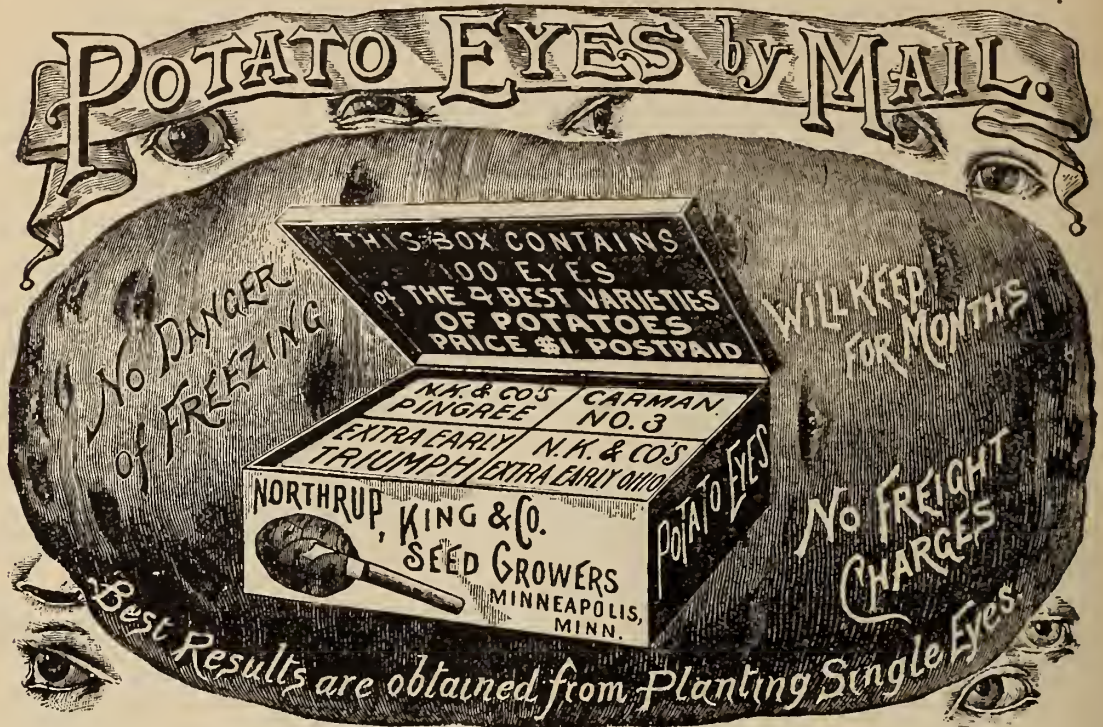 POTATO EYES by MAIL.
THIS BOX CONTAINS
100 EYES
of THE 4 BEST VARIETIES
OF POTATOES
PRICE $1. POSTPAID
No DANGER
of FREEZING
WILL KEEP
FOR MONTHS
N.K. & CO'S
PINGREE
CARMAN.
NO. 3
EXTRA EARLY
TRIUMPH
N.K. & CO'S
EXTRA EARLY OHIO
NORTHRUP, KING & CO.
SEED GROWERS
MINNEAPOLIS,
MINN.
POTATO EYES
No FREIGHT
CHARGES
Best Results are obtained from Planting Single Eyes.